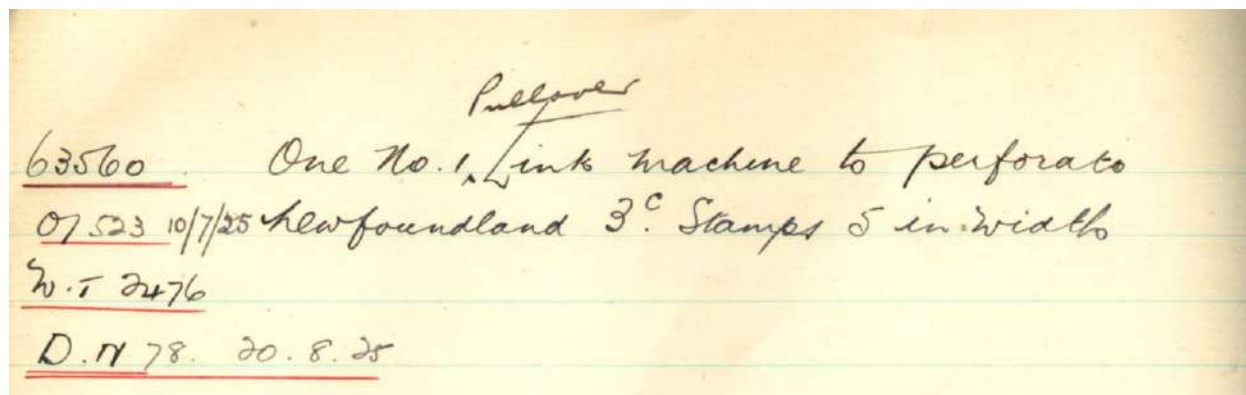 Pullover
63560 One No. 1, Link machine to perforate
O/523 10/7/25 Newfoundland 3c. Stamps 5 in width
W.T 2476
D.N 78. 20.8.25